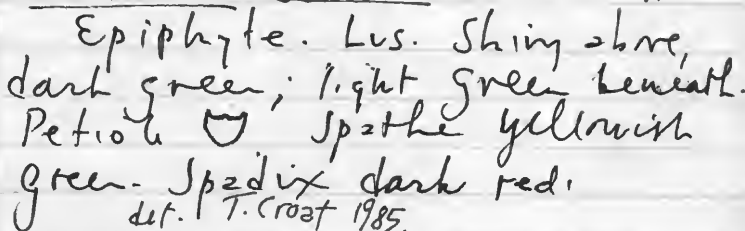 Epiphyte. Lvs. Shiny above,
dark green; light green beneath.
Petiole Spathe yellowish
green. Spadix dark red.
det. T. Croat 1985.